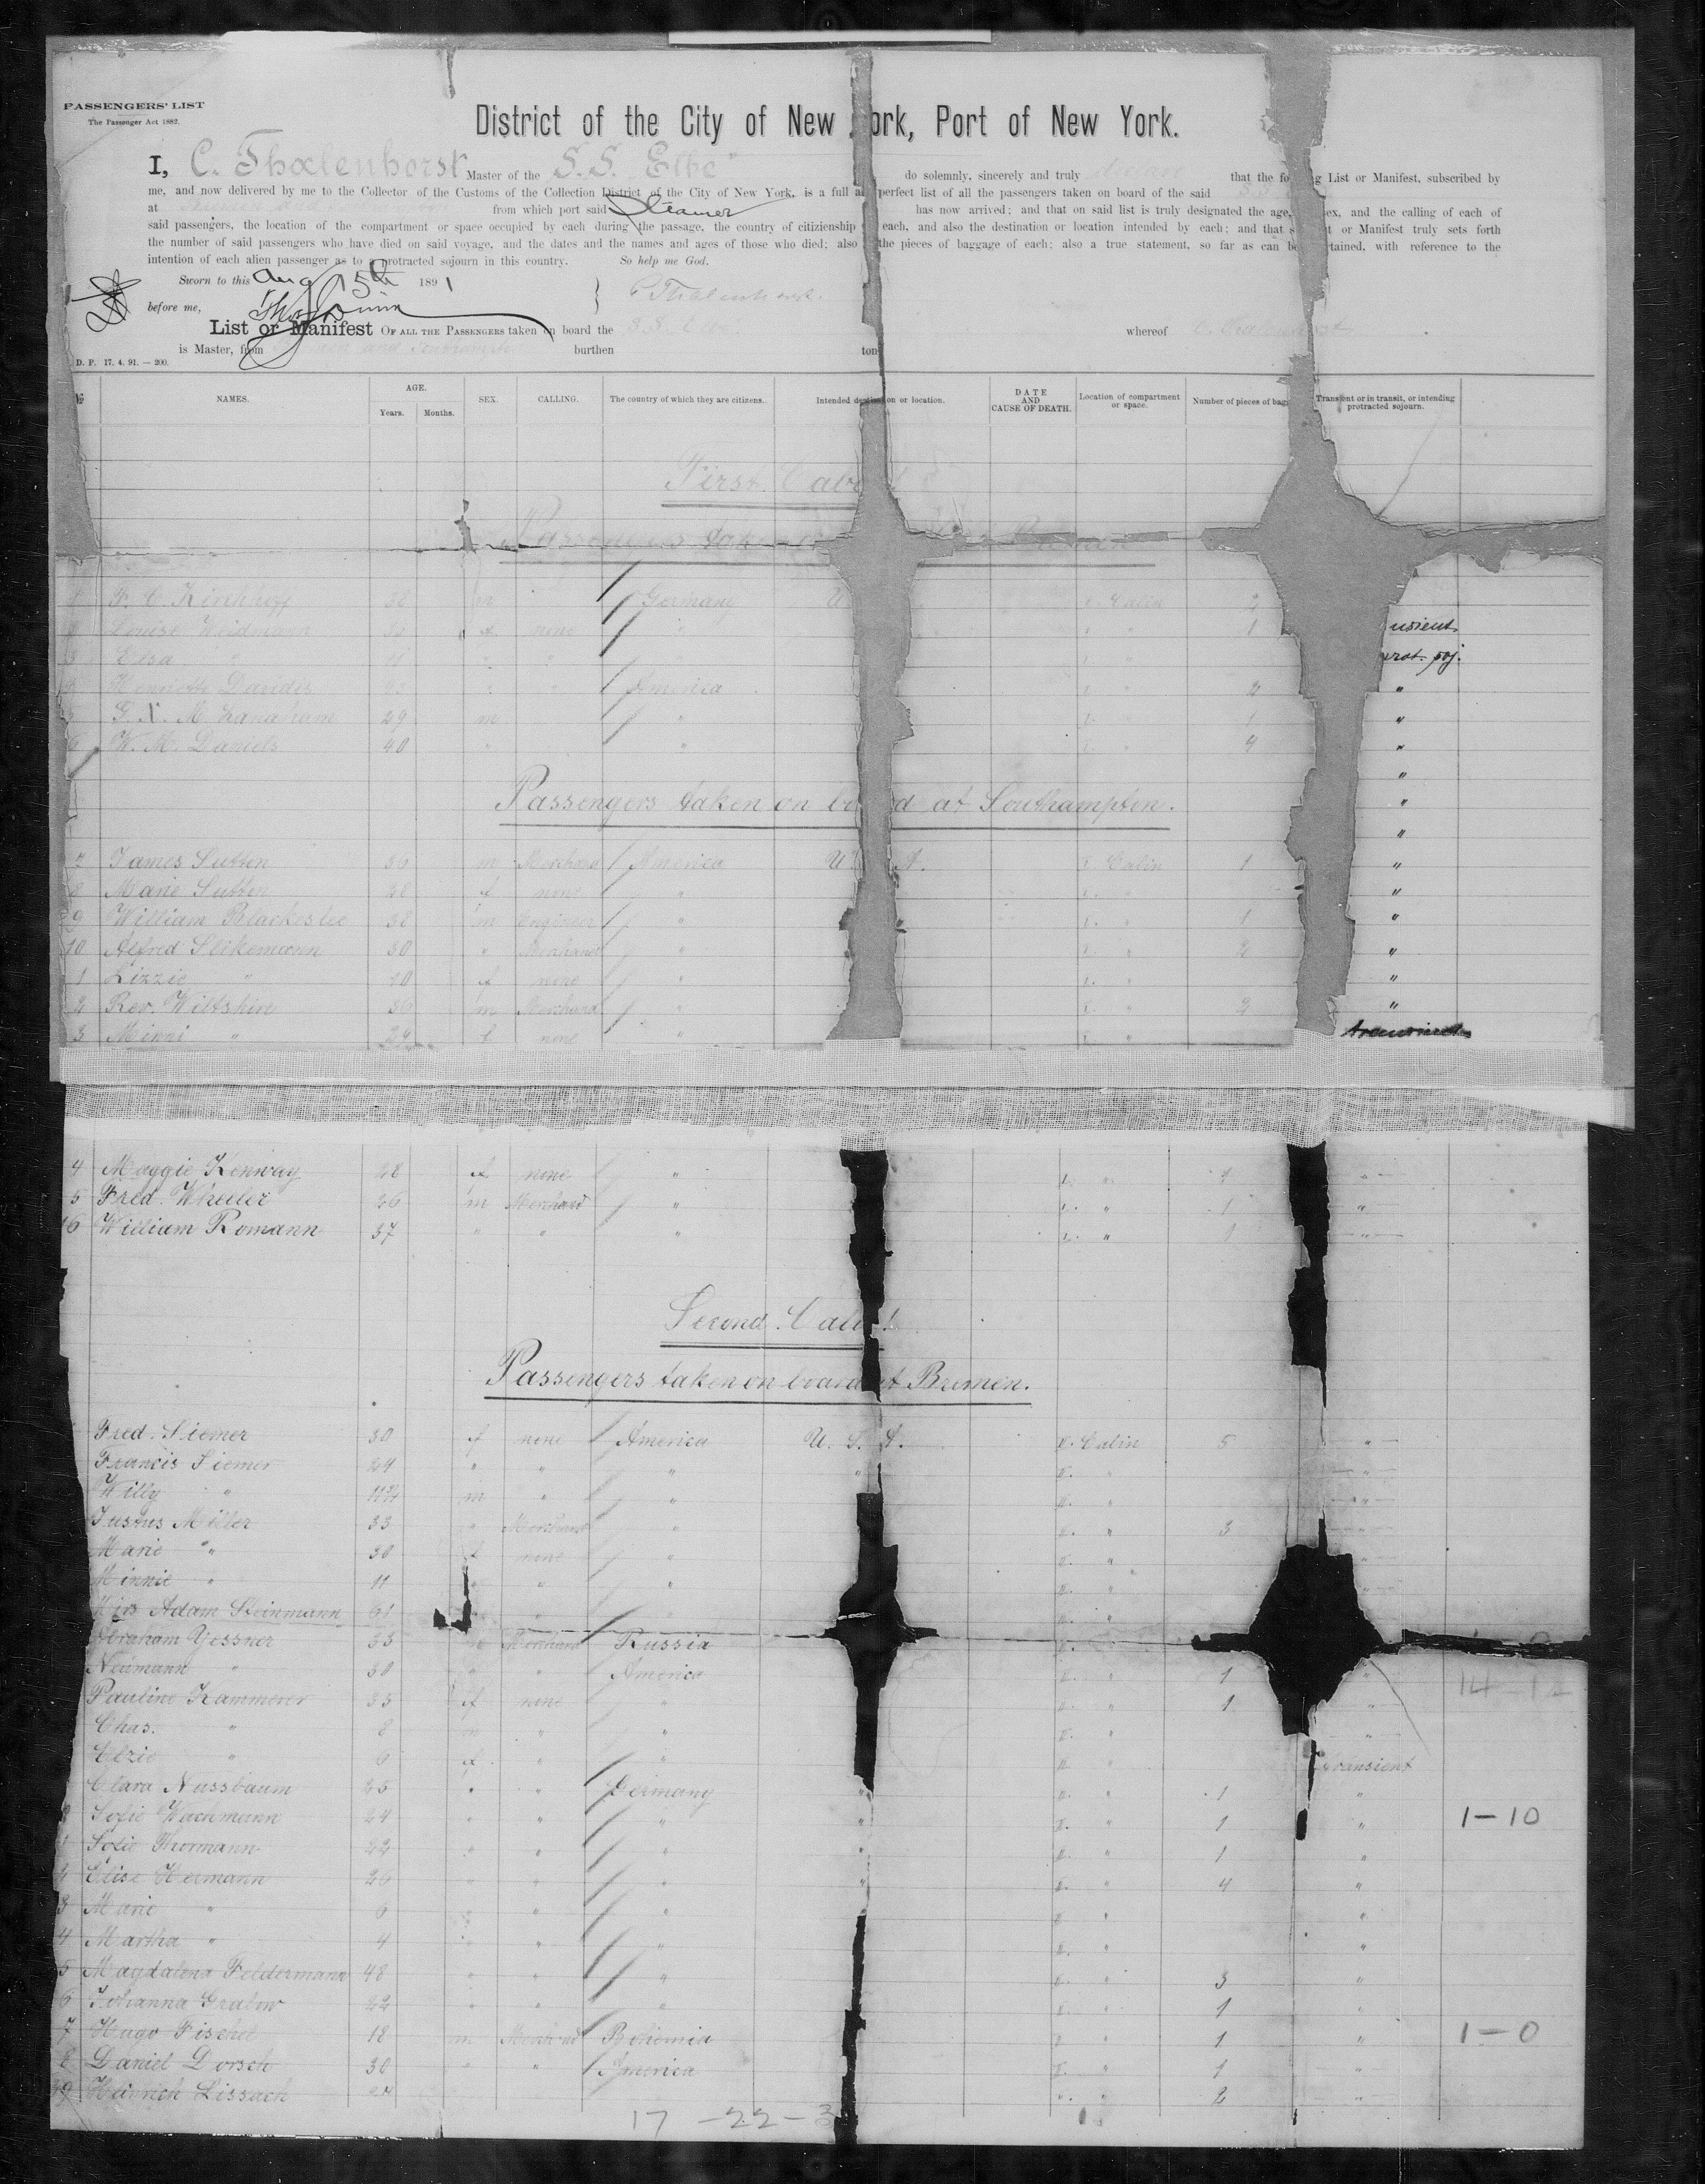 PASSENGERS' LIST
The Passenger Act 1882.
District of the City of New York, Port of New York.
I, C. Thalenhorst Master of the S.S. "Elbe" do solemnly, sincerely and truly that the following List or Manifest, subscribed by
me, and now delivered by me to the Collector of the Customs of the Collection District of the City of New York, is a full and perfect list of all the passengers taken on board of the said
at from which port said Steamer has now arrived; and that on said list is truly designated the age, sex, and the calling of each of
said passengers, the location of the compartment or space occupied by each during the passage, the country of citizienship each, and also the destination or location intended by each; and that or Manifest truly sets forth
the number of said passengers who have died on said voyage, and the dates and the names and ages of those who died; also the pieces of baggage of each; also a true statement, so far as can be ascertained, with reference to the
intention of each alien passenger as to a protracted sojourn in this country. So help me God.
Sworn to this Aug 15th 1891
before me, C Thalenhorst
List or Manifest OF ALL THE PASSENGERS taken on board the S.S. whereof C. Thalenhorst
is Master, from Bremen and Southampton burthen tons
D. P. 17. 4. 91. — 200.
№ NAMES. AGE. Years. Months. SEX. CALLING. The country of which they are citizens. Intended destination or location. DATE AND CAUSE OF DEATH. Location of compartment or space. Number of pieces of bag Transient or in transit, or intending protracted sojourn.
First Cabin
Passengers taken on Bremen
1 F. C. Kirchhoff 38 m Germany U I. Cabin 2
2 Louise Weidmann 36 f none " " " 1 nsient
3 Elsa " 11 " " I. " prot. soj.
4 Henriette Davids " " America I. " 2 "
5 G. X. M. Lanaham 29 m " I. " 1 "
6 W. M. Daniels 40 " " I. " 4 "
Passengers taken on board at Southampton.
7 James Sutton 36 m Merchand America U A. I. Cabin 1 "
8 Marie Sutton 28 f none " I. " "
9 William Blackeslee 38 m Engineer " I. " 1 "
10 Alfred Slikemann 30 " Merchand " I. " 2 "
1 Lizzie " f none " I. " "
2 Rev. Wiltshire 36 m Merchand " I. " 2 "
3 Minni " f none " I. " transient
4 Maggie Kenway 28 f none " I. " 1 "
5 Fred. Wheeler 26 m Merchand " I. " 1 "
16 William Romann 37 " " " I. " 1 "
Second Cabin
Passengers taken on board at Bremen.
Fred. Siemer 30 f none America U. S. A. II. Cabin 5 "
Francis Siemer 29 " " " " II. " "
Willy " 11 3/4 m " " II. " "
Justus Miller 33 " Merchand " II. " 3 "
Marie " 30 f none " II. " "
Minnie " 11 " " " II. " "
Mrs Adam Steinmann 61 " II. "
Abraham Gessner 33 m Merchand Russia II. "
Neumann " 30 " " America II. " 1 "
Pauline Kammerer 35 f none " II. " 1 " 14 - 12
Chas. " 8 m " " II. " "
Elzie " 6 f " " II. " transient
Clara Nussbaum 25 " " Germany " II. " 1 "
Sofie Wachmann 24 " " " " II. " 1 " 1-10
1 Sofie Thormann 22 " " " " II. " 1 "
2 Elise Hermann 26 " " " " II. " 4 "
3 Marie " 6 " " " II. " "
4 Martha " 4 " " " II. " "
5 Magdalena Feldermann 48 " " " II. " 3 "
6 Johanna Grabow 22 " " " II. " 1 "
7 Hugo Fischel 18 m Merchand Bohemia II. " 1 " 1-0
8 Daniel Dorsch 30 " " America II. " 1 "
39 Heinrich Lissach " " 2 "
17 - 22 - 3